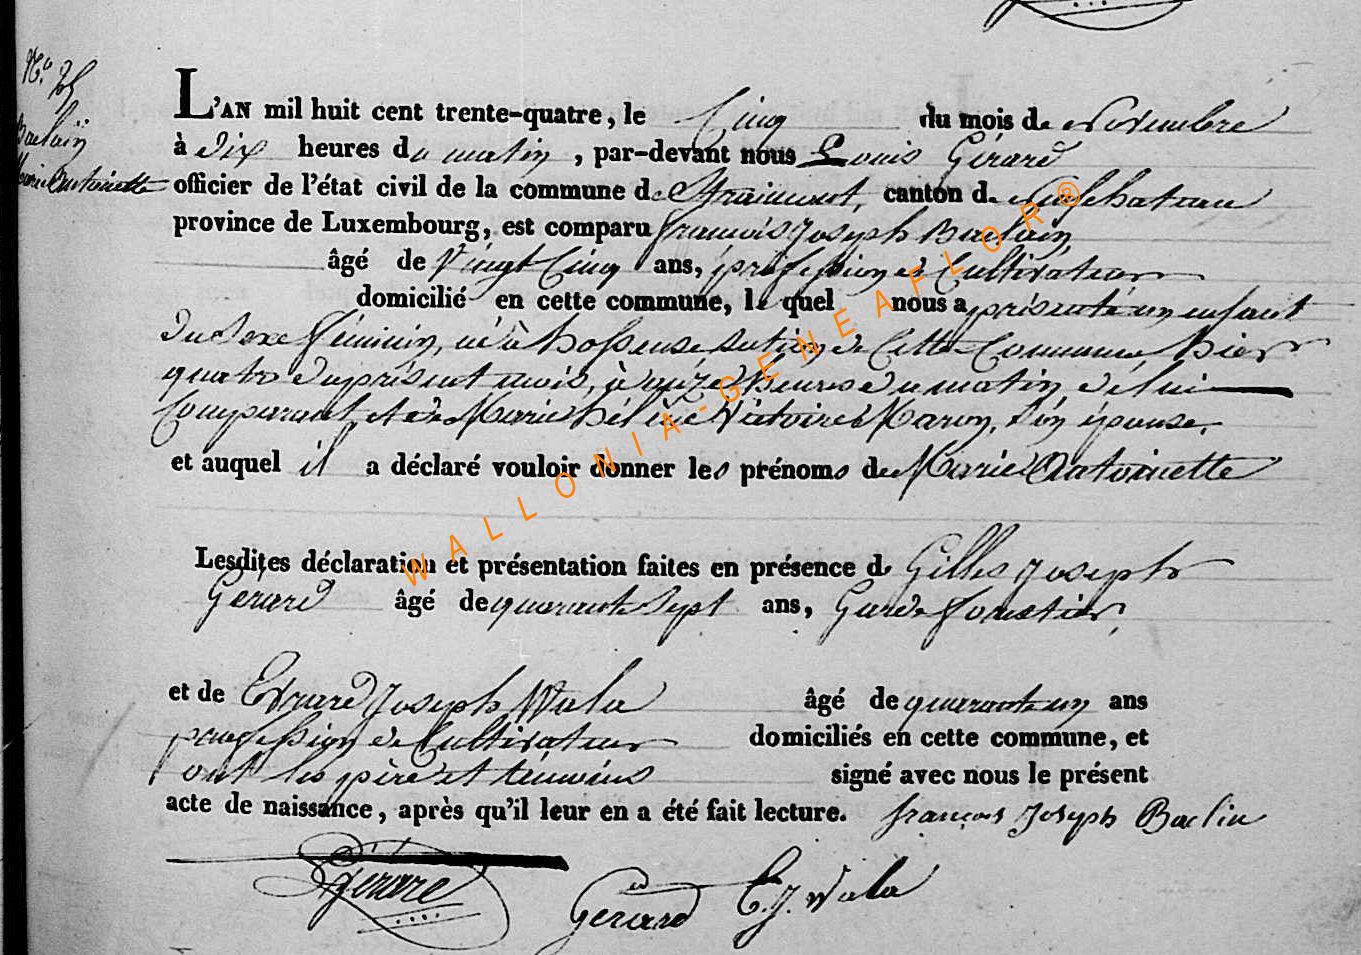 N.° 25
Baclain
Marie Antoinette
L'AN mil huit cent trente-quatre, le Cinq du mois de Novembre
à dix heures du matin, par-devant nous Louis Gérard
officier de l'état civil de la commune de Straimont, canton de Neufchateau
province de Luxembourg, est comparu françois Joseph Baclain,
âgé de Vingt Cinq ans, profession de Cultivateur
domicilié en cette commune, le quel nous a présenté un enfant
du Sexe féminin, né à hosseuse section de Cette Commune hier
quatre du présent mois, à onze heures du matin de lui
Comparant et de Marie hélène Victoire Maron, Son épouse,
et auquel il a déclaré vouloir donner les prénoms de Marie Antoinette
Lesdites déclaration et présentation faites en présence de Gilles Joseph
Gérard âgé de quarante Sept ans, Garde forestier,
et de Evrard Joseph Wala âgé de quarante un ans
profession de Cultivateur domiciliés en cette commune, et
ont les père et témoins signé avec nous le présent
acte de naissance, après qu'il leur en a été fait lecture. françois Joseph Baclin
L Gerard
Gerard E. J. Wala
WALLONIA-GENEAFLOR®